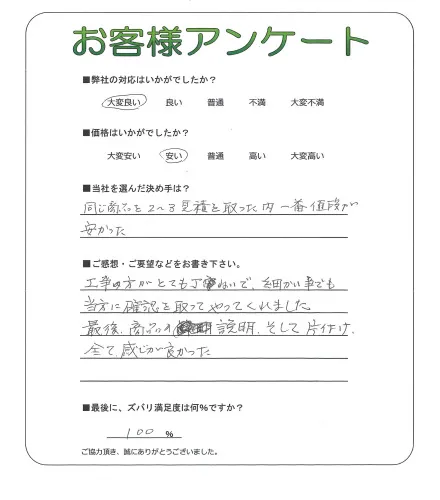 お客様アンケート
■弊社の対応はいかがでしたか？
大変良い 良い 普通 不満 大変不満
■価格はいかがでしたか？
大変安い 安い 普通 高い 大変高い
■当社を選んだ決め手は？
同じ商品を2〜3見積を取った内 一番値段が
安かった
■ご感想・ご要望などをお書き下さい。
工事の方がとても丁寧ねいで、細かい事でも
当方に確認を取ってやってくれました。
最後、商品の 説明、そして片付け、
全て、感じが良かった
■最後に、ズバリ満足度は何%ですか？
100 %
ご協力頂き、誠にありがとうございました。